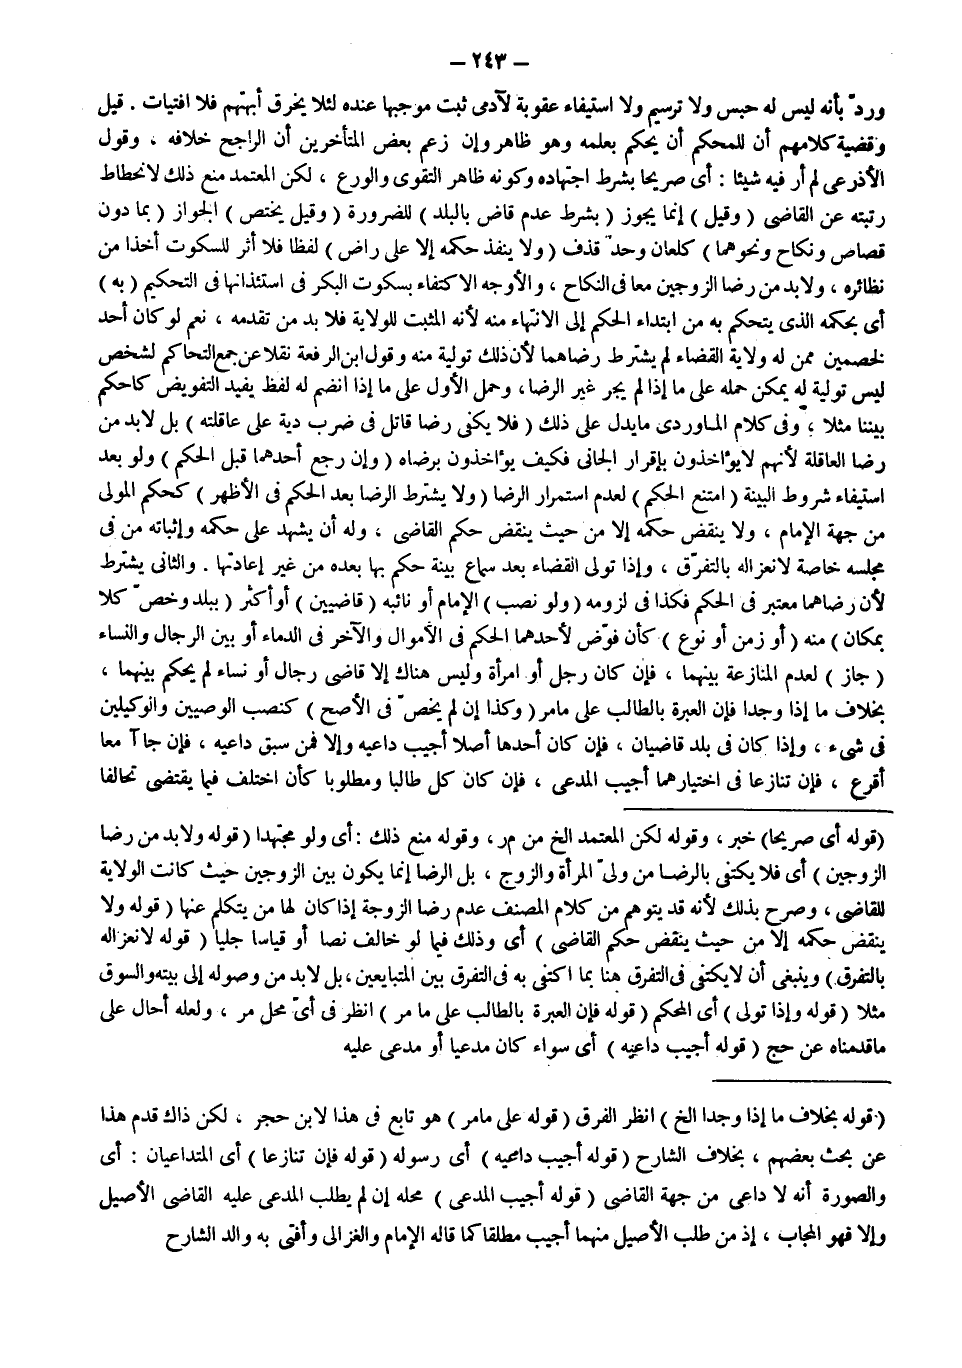 — ٢٤٣ —
وردّ بأنه ليس له حبس ولا ترسيم ولا استيفاء عقوبة لآدمى ثبت موجبها عنده لئلا يخرق أبهتهم فلا افتيات . قيل
وقضية كلامهم أن للمحكم أن يحكم بعلمه وهو ظاهر وإن زعم بعض المتأخرين أن الراجح خلافه ، وقول
الأذرعى لم أر فيه شيئا : أى صريحا بشرط اجتهاده وكونه ظاهر التقوى والورع ، لكن المعتمد منع ذلك لانحطاط
رتبته عن القاضى ( وقيل ) إنما يجوز ( بشرط عدم قاض بالبلد ) للضرورة ( وقيل يختص ) الجواز ( بما دون
قصاص ونكاح ونحوهما ) كلعان وحدّ قذف ( ولا ينفذ حكمه إلا على راض ) لفظا فلا أثر للسكوت أخذا من
نظائره ، ولابد من رضا الزوجين معا فى النكاح ، والأوجه الاكتفاء بسكوت البكر فى استئذانها فى التحكيم ( به )
أى بحكمه الذى يتحكم به من ابتداء الحكم إلى الانتهاء منه لأنه المثبت للولاية فلا بد من تقدمه ، نعم لو كان أحد
لخصمين ممن له ولاية القضاء لم يشترط رضاهما لأن ذلك تولية منه وقول ابن الرفعة نقلا عن جمع التحاكم لشخص
ليس تولية له يمكن حمله على ما إذا لم يجر غير الرضا ، وحمل الأول على ما إذا انضم له لفظ يفيد التفويض كاحكم
بيننا مثلا ، وفى كلام الماوردى مايدل على ذلك ( فلا يكفى رضا قاتل فى ضرب دية على عاقلته ) بل لابد من
رضا العاقلة لأنهم لايؤاخذون بإقرار الجانى فكيف يؤاخذون برضاه ( وإن رجع أحدهما قبل الحكم ) ولو بعد
استيفاء شروط البينة ( امتنع الحكم ) لعدم استمرار الرضا ( ولا يشترط الرضا بعد الحكم فى الأظهر ) كحكم المولى
من جهة الإمام ، ولا ينقض حكمه إلا من حيث ينقض حكم القاضى ، وله أن يشهد على حكمه وإثباته من فى
مجلسه خاصة لانعزاله بالتفرّق ، وإذا تولى القضاء بعد سماع بينة حكم بها بعده من غير إعادتها . والثانى يشترط
لأن رضاهما معتبر فى الحكم فكذا فى لزومه ( ولو نصب ) الإمام أو نائبه ( قاضيين ) أو أكثر ( ببلد وخصّ كلا
بمكان ) منه ( أو زمن أو نوع ) كأن فوّض لأحدهما الحكم فى الأموال والآخر فى الدماء أو بين الرجال والنساء
( جاز ) لعدم المنازعة بينهما ، فإن كان رجل أو امرأة وليس هناك إلا قاضى رجال أو نساء لم يحكم بينهما ،
بخلاف ما إذا وجدا فإن العبرة بالطالب على مامر ( وكذا إن لم يخصّ فى الأصح ) كنصب الوصيين والوكيلين
فى شىء ، وإذا كان فى بلد قاضيان ، فإن كان أحدها أصلا أجيب داعيه وإلا فمن سبق داعيه ، فإن جاآ معا
أقرع ، فإن تنازعا فى اختيارهما أجيب المدعى ، فإن كان كل طالبا ومطلوبا كأن اختلف فيما يقتضى تحالفا
( قوله أى صريحا) خبر ، وقوله لكن المعتمد الخ من مر ، وقوله منع ذلك : أى ولو مجتهدا ( قوله ولابد من رضا
الزوجين ) أى فلا يكتفى بالرضا من ولىّ المرأة والزوج ، بل الرضا إنما يكون بين الزوجين حيث كانت الولاية
للقاضى ، وصرح بذلك لأنه قد يتوهم من كلام المصنف عدم رضا الزوجة إذا كان لها من يتكلم عنها ( قوله ولا
ينقض حكمه إلا من حيث ينقض حكم القاضى ) أى وذلك فيما لو خالف نصا أو قياسا جليا ( قوله لانعزاله
بالتفرق ) وينبغى أن لايكتفى فى التفرق هنا بما اكتفى به فى التفرق بين المتبايعين ، بل لابد من وصوله إلى بيته والسوق
مثلا ( قوله وإذا تولى ) أى المحكم ( قوله فإن العبرة بالطالب على ما مر ) انظر فى أىّ محل مر ، ولعله أحال على
ماقدمناه عن حج ( قوله أجيب داعيه ) أى سواء كان مدعيا أو مدعى عليه
( قوله بخلاف ما إذا وجدا الخ ) انظر الفرق ( قوله على مامر ) هو تابع فى هذا لابن حجر ، لكن ذاك قدم هذا
عن بحث بعضهم ، بخلاف الشارح ( قوله أجيب داعيه ) أى رسوله ( قوله فإن تنازعا ) أى المتداعيان : أى
والصورة أنه لا داعى من جهة القاضى ( قوله أجيب المدعى ) محله إن لم يطلب المدعى عليه القاضى الأصيل
وإلا فهو المجاب ، إذ من طلب الأصيل منهما أجيب مطلقا كما قاله الإمام والغزالى وأفتى به والد الشارح